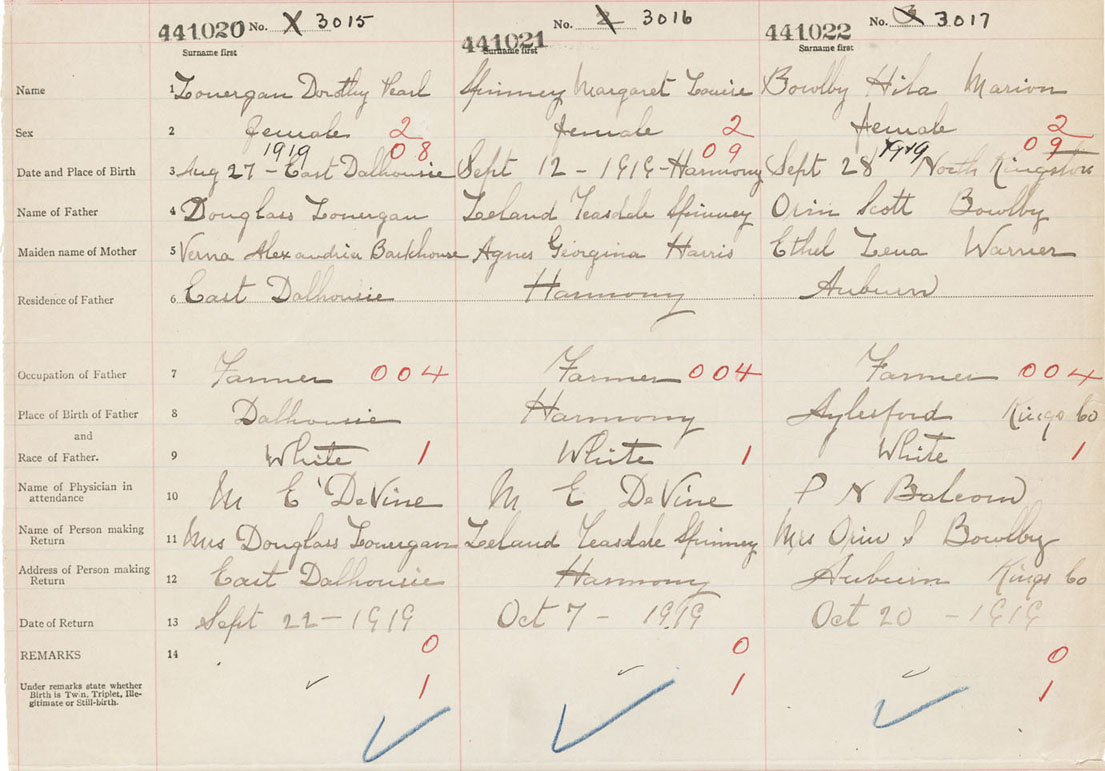 441020 No. X 3015 441021 No. 2 3016 441022 No. 3 3017
Surname first Surname first Surname first
Name 1 Lonergan Dorothy Pearl Spinney Margaret Louise Bowlby Hila Marion
Sex 2 female 2 female 2 female 2
1919 08 09 1919 09
Date and Place of Birth 3 Aug 27 - East Dalhousie Sept 12 - 1919 - Harmony Sept 28 North Kingston
Name of Father 4 Douglass Lonergan Leland Teasdale Spinney Orin Scott Bowlby
Maiden name of Mother 5 Verna Alexandria Barkhouse Agnes Georgina Harris Ethel Lena Warner
Residence of Father 6 East Dalhousie Harmony Auburn
Occupation of Father 7 Farmer 004 Farmer 004 Farmer 004
Place of Birth of Father 8 Dalhousie Harmony Aylesford Kings Co
and
Race of Father. 9 White 1 White 1 White 1
Name of Physician in
attendance 10 M E DeVine M E DeVine P N Balcom
Name of Person making
Return 11 Mrs Douglass Lonergan Leland Teasdale Spinney Mrs Orin S Bowlby
Address of Person making
Return 12 East Dalhousie Harmony Auburn Kings Co
Date of Return 13 Sept 22 - 1919 Oct 7 - 1919 Oct 20 - 1919
REMARKS 14 0 0 0
Under remarks state whether
Birth is Twin, Triplet, Ille-
gitimate or Still-birth. 1 1 1